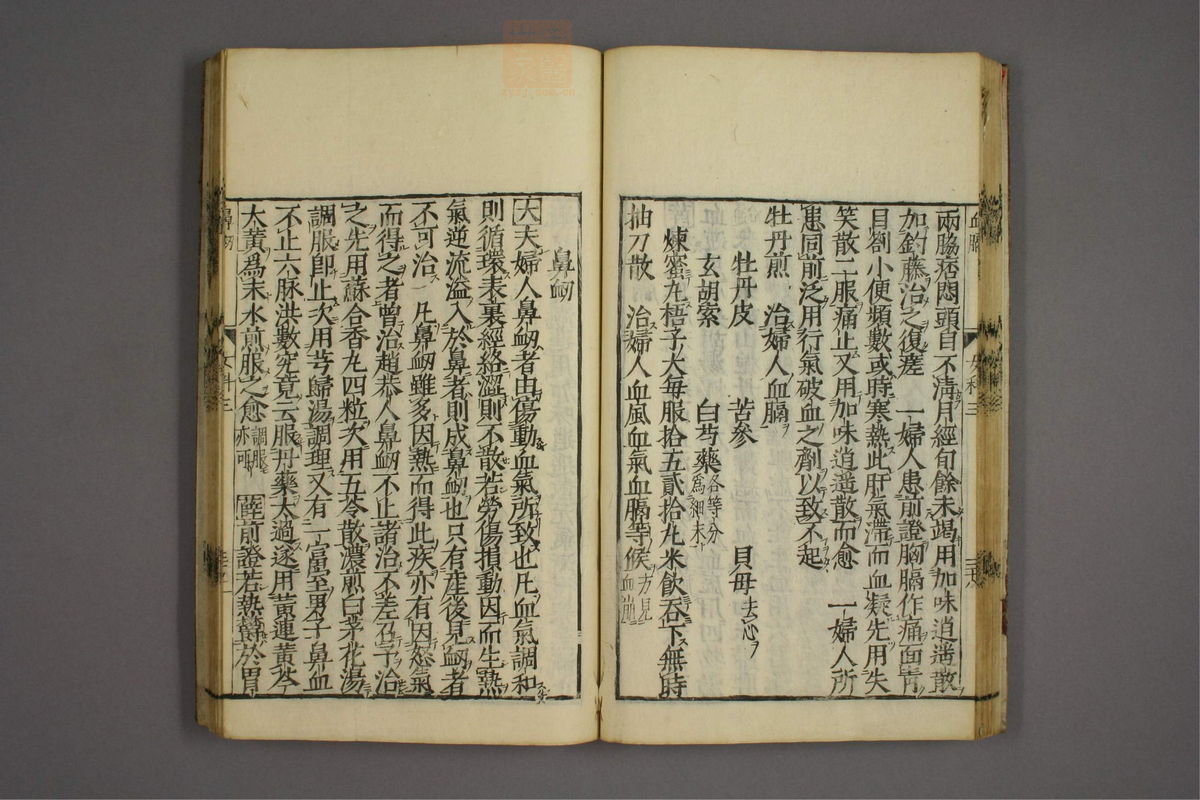 兩脇痞悶頭目不淸月經旬餘未竭用加味逍遙散
加鈎藤治之復瘥　一婦人患前證胸膈作痛面靑
目劄小便頻數或時寒熱此肝氣滯而血凝先用失
笑散二服痛止又用加味逍遙散而愈　一婦人所
患同前泛用行氣破血之劑以致不起
牡丹煎　治婦人血膈
牡丹皮　苦參　貝母去心
玄胡索　白芍藥各等分爲細末
煉蜜丸梧子大每服拾五貳拾丸米飮呑下無時
抽刀散　治婦人血風血氣血膈等候方見血崩
鼻衂
大夫婦人鼻衂者由傷動血氣所致也凡血氣調和
則循環表裏經絡澀則不散若勞傷損動因而生熱
氣逆流溢入於鼻者則成鼻衂也只有産後見衂者
不可治　凡鼻衂雖多因熱而得此疾亦有因怒氣
而得之者曾治趙恭人鼻衂不止諸治不瘥召予治
之先用蘇合香丸四粒次用五苓散濃煎白茅花湯
調服即止次用芎歸湯調理又有一富室男子鼻血
不止六脉洪數究竟云服丹藥太過遂用黃連黃芩
大黃爲末水煎服之愈調服亦可　薛前證若熱鬱於胃
女科三
女科三